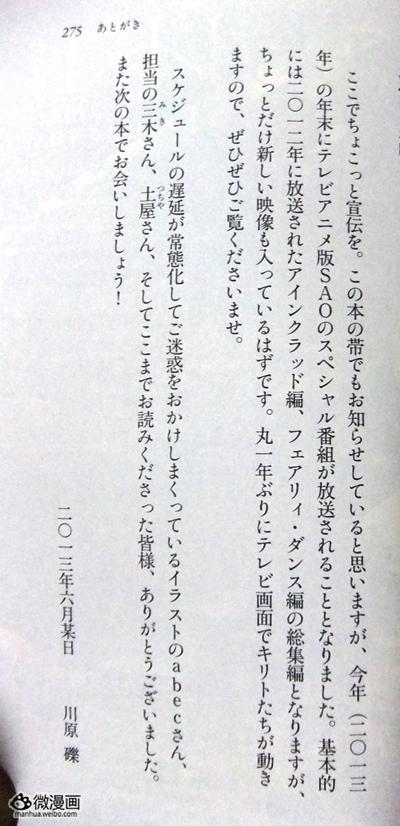 275 あとがき
ここでちょこっと宣伝を。この本の帯でもお知らせしていると思いますが、今年（二〇一三
年）の年末にテレビアニメ版SAOのスペシャル番組が放送されることとなりました。基本的
には二〇一二年に放送されたアインクラッド編、フェアリィ・ダンス編の総集編となりますが、
ちょっとだけ新しい映像も入っているはずです。丸一年ぶりにテレビ画面でキリトたちが動き
ますので、ぜひぜひご覧くださいませ。
スケジュールの遅延が常態化してご迷惑をおかけしまくっているイラストのabecさん、
担当の三木さん、土屋さん、そしてここまでお読みくださった皆様、ありがとうございました。
みき
つちや
また次の本でお会いしましょう！
二〇一三年六月某日 川原 礫
微漫画
manhua.weibo.com